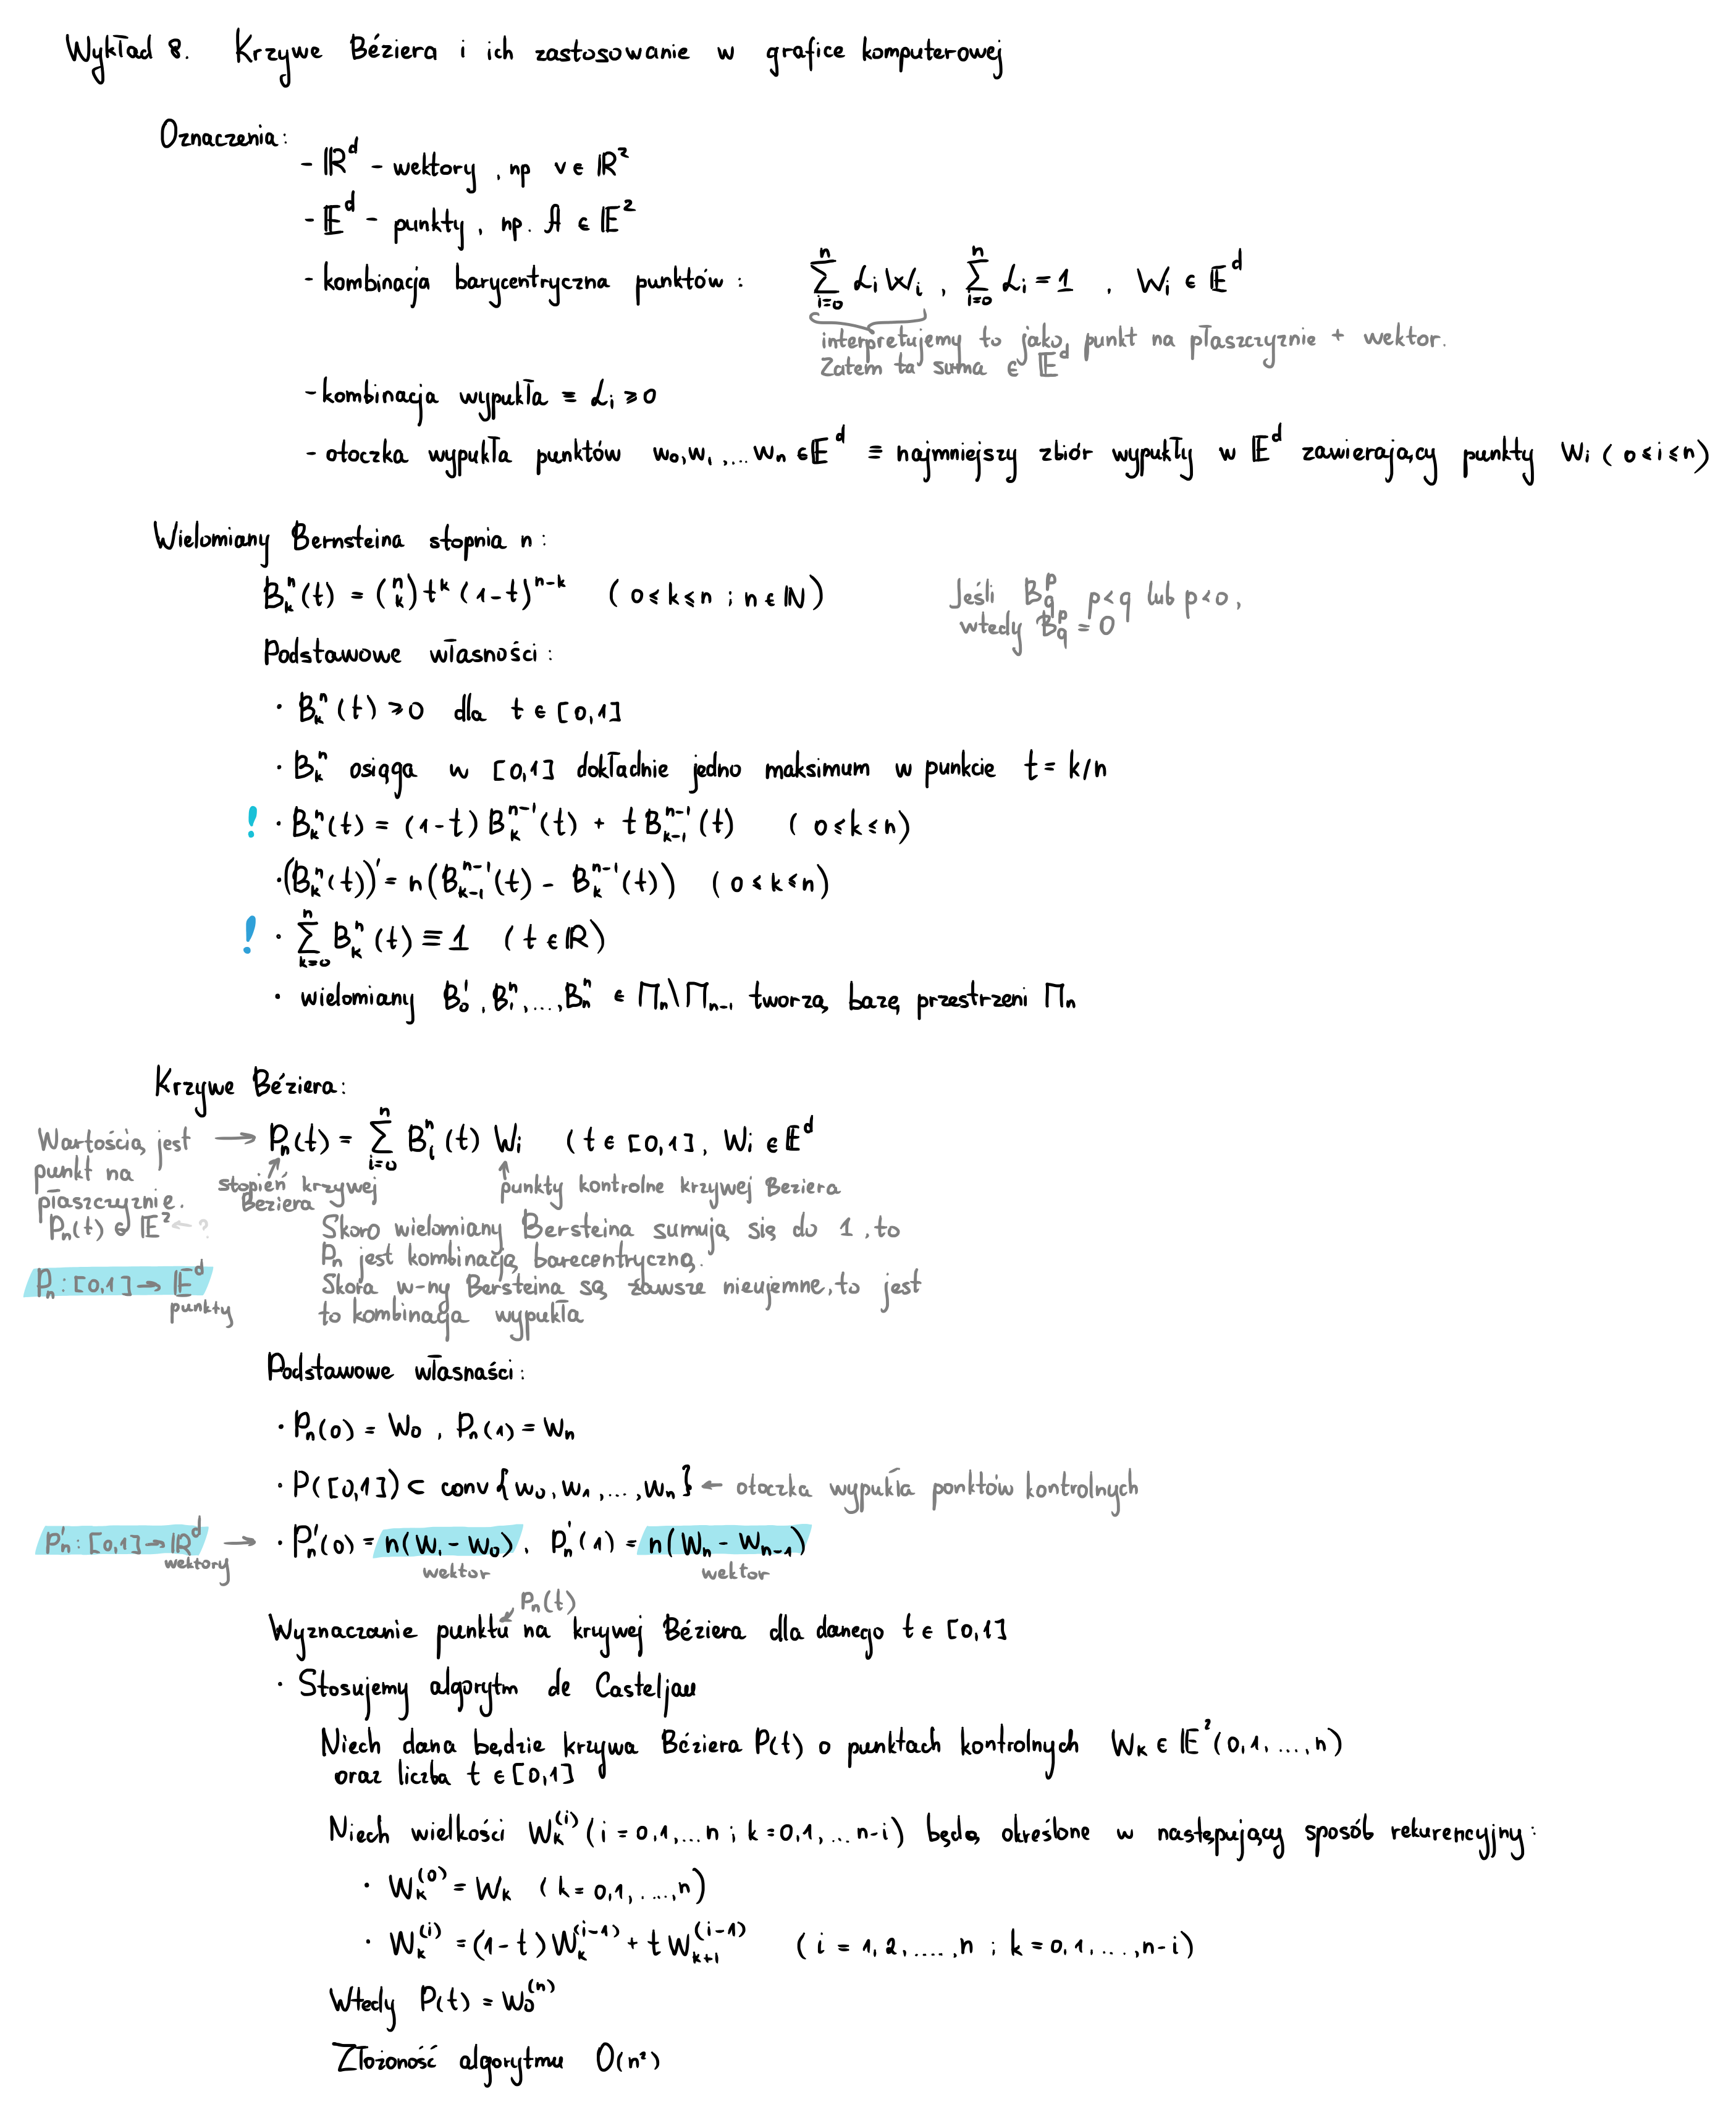 Wykład 8. Krzywe Béziera i ich zastosowanie w grafice komputerowej
Oznaczenia:
- ℝ^d - wektory, np v ∈ ℝ^2
- 𝔼^d - punkty, np. A ∈ 𝔼^2
- kombinacja barycentryczna punktów: ∑_{i=0}^{n} α_i W_i, ∑_{i=0}^{n} α_i = 1, W_i ∈ 𝔼^d
interpretujemy to jako punkt na płaszczyznie + wektor.
Zatem ta suma ∈ 𝔼^d
- kombinacja wypukła ≡ α_i ⩾ 0
- otoczka wypukła punktów w_0, w_1, ... w_n ∈ 𝔼^d ≡ najmniejszy zbiór wypukły w 𝔼^d zawierający punkty W_i (0 ≤ i ≤ n)
Wielomiany Bernsteina stopnia n:
B_k^n(t) = (n k) t^k (1-t)^{n-k} (0 ≤ k ≤ n ; n ∈ ℕ)
Jeśli B_q^p p<q lub p<0,
wtedy B_q^p = 0
Podstawowe własności:
· B_k^n(t) ⩾ 0 dla t ∈ [0,1]
· B_k^n osiąga w [0,1] dokładnie jedno maksimum w punkcie t = k/n
! · B_k^n(t) = (1-t) B_k^{n-1}(t) + t B_{k-1}^{n-1}(t) (0 ≤ k ≤ n)
· (B_k^n(t))' = n(B_{k-1}^{n-1}(t) - B_k^{n-1}(t)) (0 ≤ k ≤ n)
! · ∑_{k=0}^{n} B_k^n(t) ≡ 1 (t ∈ ℝ)
· wielomiany B_0^1, B_1^n, ..., B_n^n ∈ Π_n \ Π_{n-1} tworzą bazę przestrzeni Π_n
Krzywe Béziera:
Wartością jest → P_n(t) = ∑_{i=0}^{n} B_i^n(t) W_i (t ∈ [0,1], W_i ∈ 𝔼^d
punkt na
płaszczyznie.
P_n(t) ∈ 𝔼^2 ← ?
stopień krzywej
Beziera
punkty kontrolne krzywej Beziera
Skoro wielomiany Bersteina sumują się do 1, to
P_n jest kombinacją barecentryczną.
Skora w-ny Bersteina są zawsze nieujemne, to jest
to kombinacja wypukła
P_n : [0,1] → 𝔼^d
punkty
Podstawowe własnaści:
· P_n(0) = W_0, P_n(1) = W_n
· P([0,1]) ⊂ conv{w_0, w_1, ..., w_n} ← otoczka wypukła ponktów kontrolnych
P'_n : [0,1] → ℝ^d → · P'_n(0) = n(W_1 - W_0), P'_n(1) = n(W_n - W_{n-1})
wektory wektor wektor
P_n(t)
Wyznaczanie punktu na krzywej Béziera dla danego t ∈ [0,1]
· Stosujemy algorytm de Casteljau
Niech dana będzie krzywa Béziera P(t) o punktach kontrolnych W_k ∈ 𝔼^2 (0,1,...,n)
oraz liczba t ∈ [0,1]
Niech wielkości W_k^{(i)} (i = 0,1,...n ; k = 0,1, ... n-i) będą określone w następujący sposób rekurencyjny:
· W_k^{(0)} = W_k (k = 0,1, ....,n)
· W_k^{(i)} = (1-t) W_k^{(i-1)} + t W_{k+1}^{(i-1)} (i = 1,2, ....,n ; k = 0,1, ...,n-i)
Wtedy P(t) = W_0^{(n)}
Złożoność algorytmu O(n²)